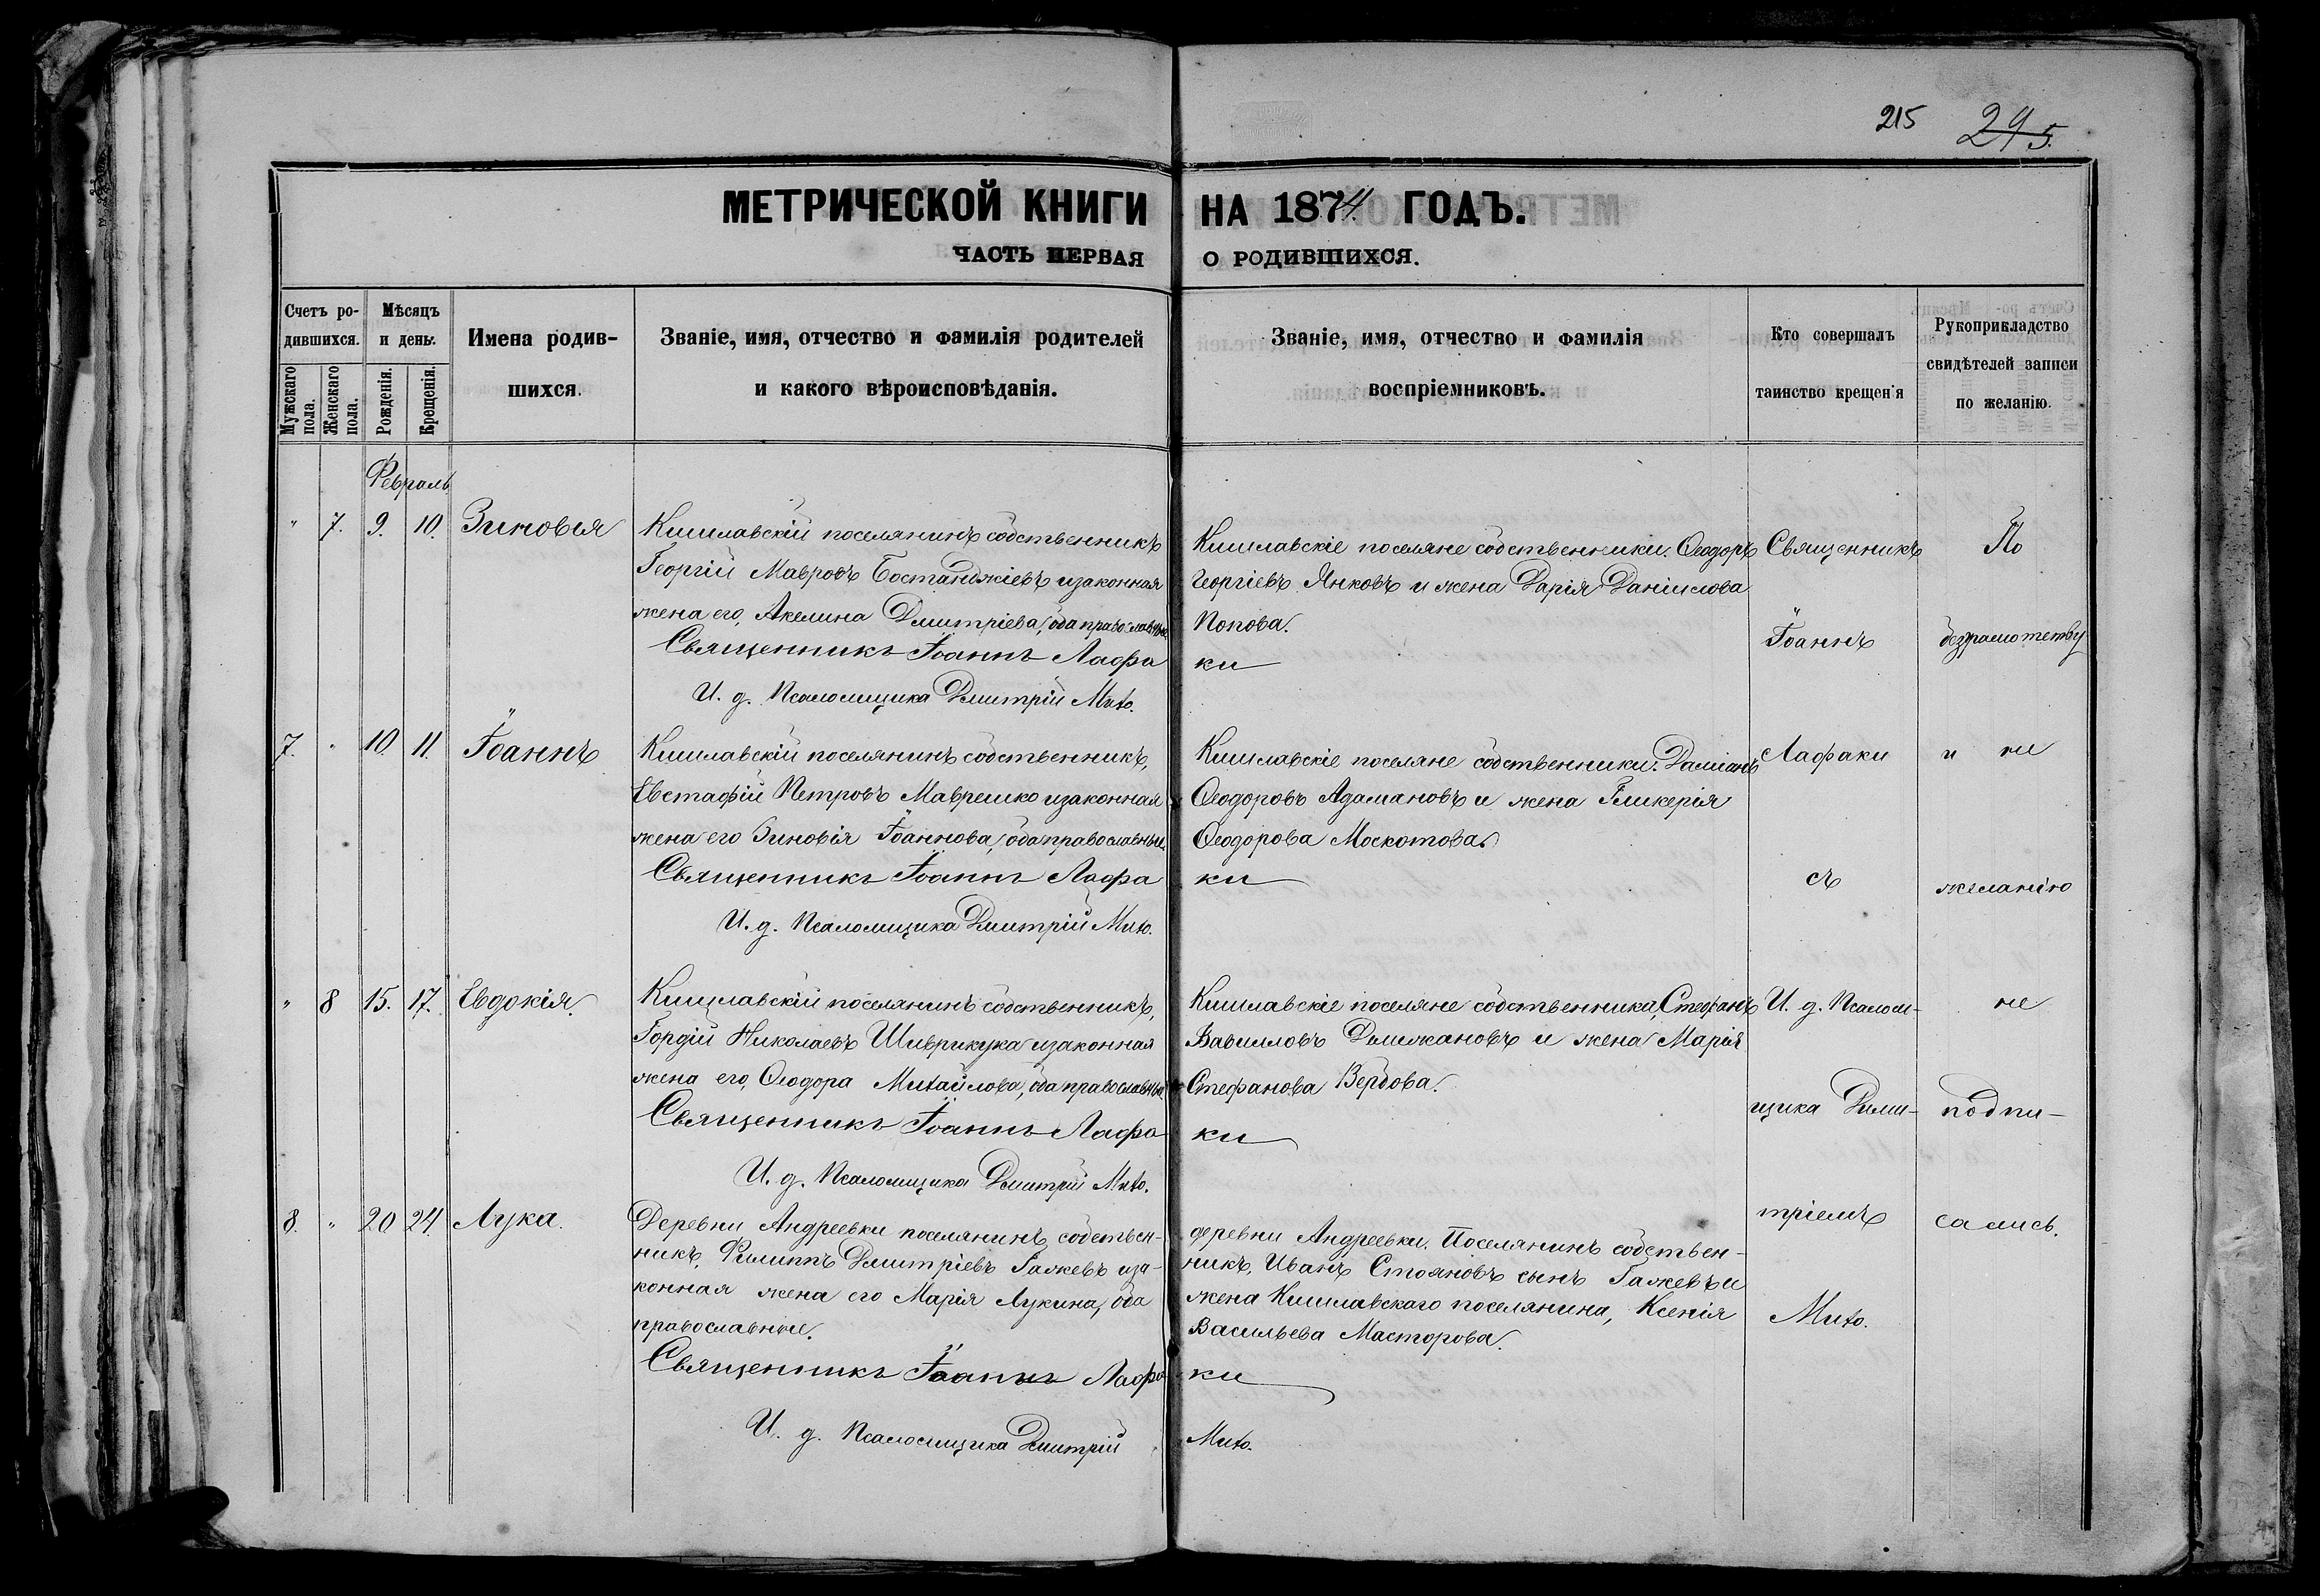 215 295.
МЕТРИЧЕСКОЙ КНИГИ НА 1874 ГОДЪ.
ЧАСТЬ ПЕРВАЯ О РОДИВШИХСЯ.
Счетъ ро-
дившихся.
Мужскаго пола.
Женскаго пола.
Мѣсяцъ
и день.
Рожденія.
Крещенія.
Имена родив-
шихся.
Званіе, имя, отчество и фамилія родителей
и какого вѣроисповѣданія.
Званіе, имя, отчество и фамилія
воспріемниковъ.
Кто совершалъ
таинство крещенія
Рукоприкладство
свидѣтелей записи
по желанію.
Февраль
" 7. 9. 10. Зиновія
Кишлавскій поселянинъ собственникъ
Георгій Мавровъ Бостанджіевъ и законная
жена его, Акелина Дмитріева, оба православные.
Священникъ Іоаннъ Лафа
И. д. Псаломщика Дмитрій Мито.
Кишлавскіе поселяне собственники, Ѳеодоръ
Георгіевъ Янковъ и жена Дарія Даніилова
Попова.
ки
Священникъ
Іоаннъ
По
безграмотству
7. " 10. 11. Іоаннъ
Кишлавскій поселянинъ собственникъ,
Евстафій Петровъ Маврешко и законная
жена его Зиновія Іоаннова, оба православные.
Священникъ Іоаннъ Лафа
И. д. Псаломщика Дмитрій Мито.
Кишлавскіе поселяне собственники. Даміанъ
Ѳеодоровъ Адамановъ и жена Гликерія
Ѳеодорова Москотова.
ки
Лафаки
съ
и не
желанію
" 8 15. 17. Евдокія.
Кишлавскій поселянинъ собственникъ,
Гордій Николаевъ Шиврикука и законная
жена его, Ѳеодора Михайлова, оба православные
Священникъ Іоаннъ Лафа
И. д. Псаломщика Дмитрій Мито.
Кишлавскіе поселяне собственника, Стефанъ
Вавилловъ Домжановъ и жена Марія
Стефанова Вербова.
ки
И. д. Псалом-
щика Дими-
не
подпи-
8. " 20 24. Лука.
Деревни Андреевки поселянинъ собствен-
никъ, Филиппъ Дмитріевъ Гажевъ и за-
конная жена его Марія Лукина, оба
православные.
Священникъ Іоаннъ Лафа
И. д. Псаломщика Дмитрій
деревни Андреевки. Поселянинъ собствен-
никъ, Иванъ Стояновъ сынъ Гажевъ и
жена Кишлавскаго поселянина, Ксенія
Васильева Масторова.
ки
Мито.
тріемъ
Мито.
сались.